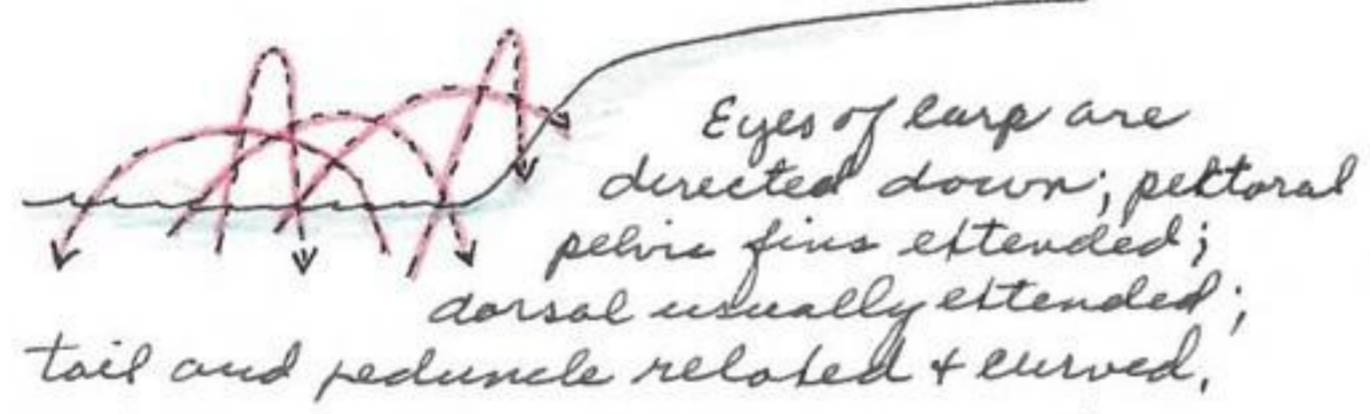 Eyes of carp are
directed down; pektoral
pelvic fins extended;
dorsal usually extended;
tail and peduncle relaxed & curved.